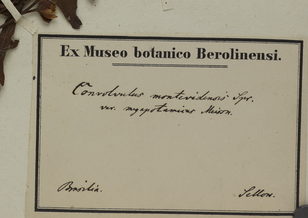 Ex Museo botanico Berolinensi.
Convolvulus montevidensis Spr.
var. megapotamicus Meissn.
Brasilia.
Sellow.